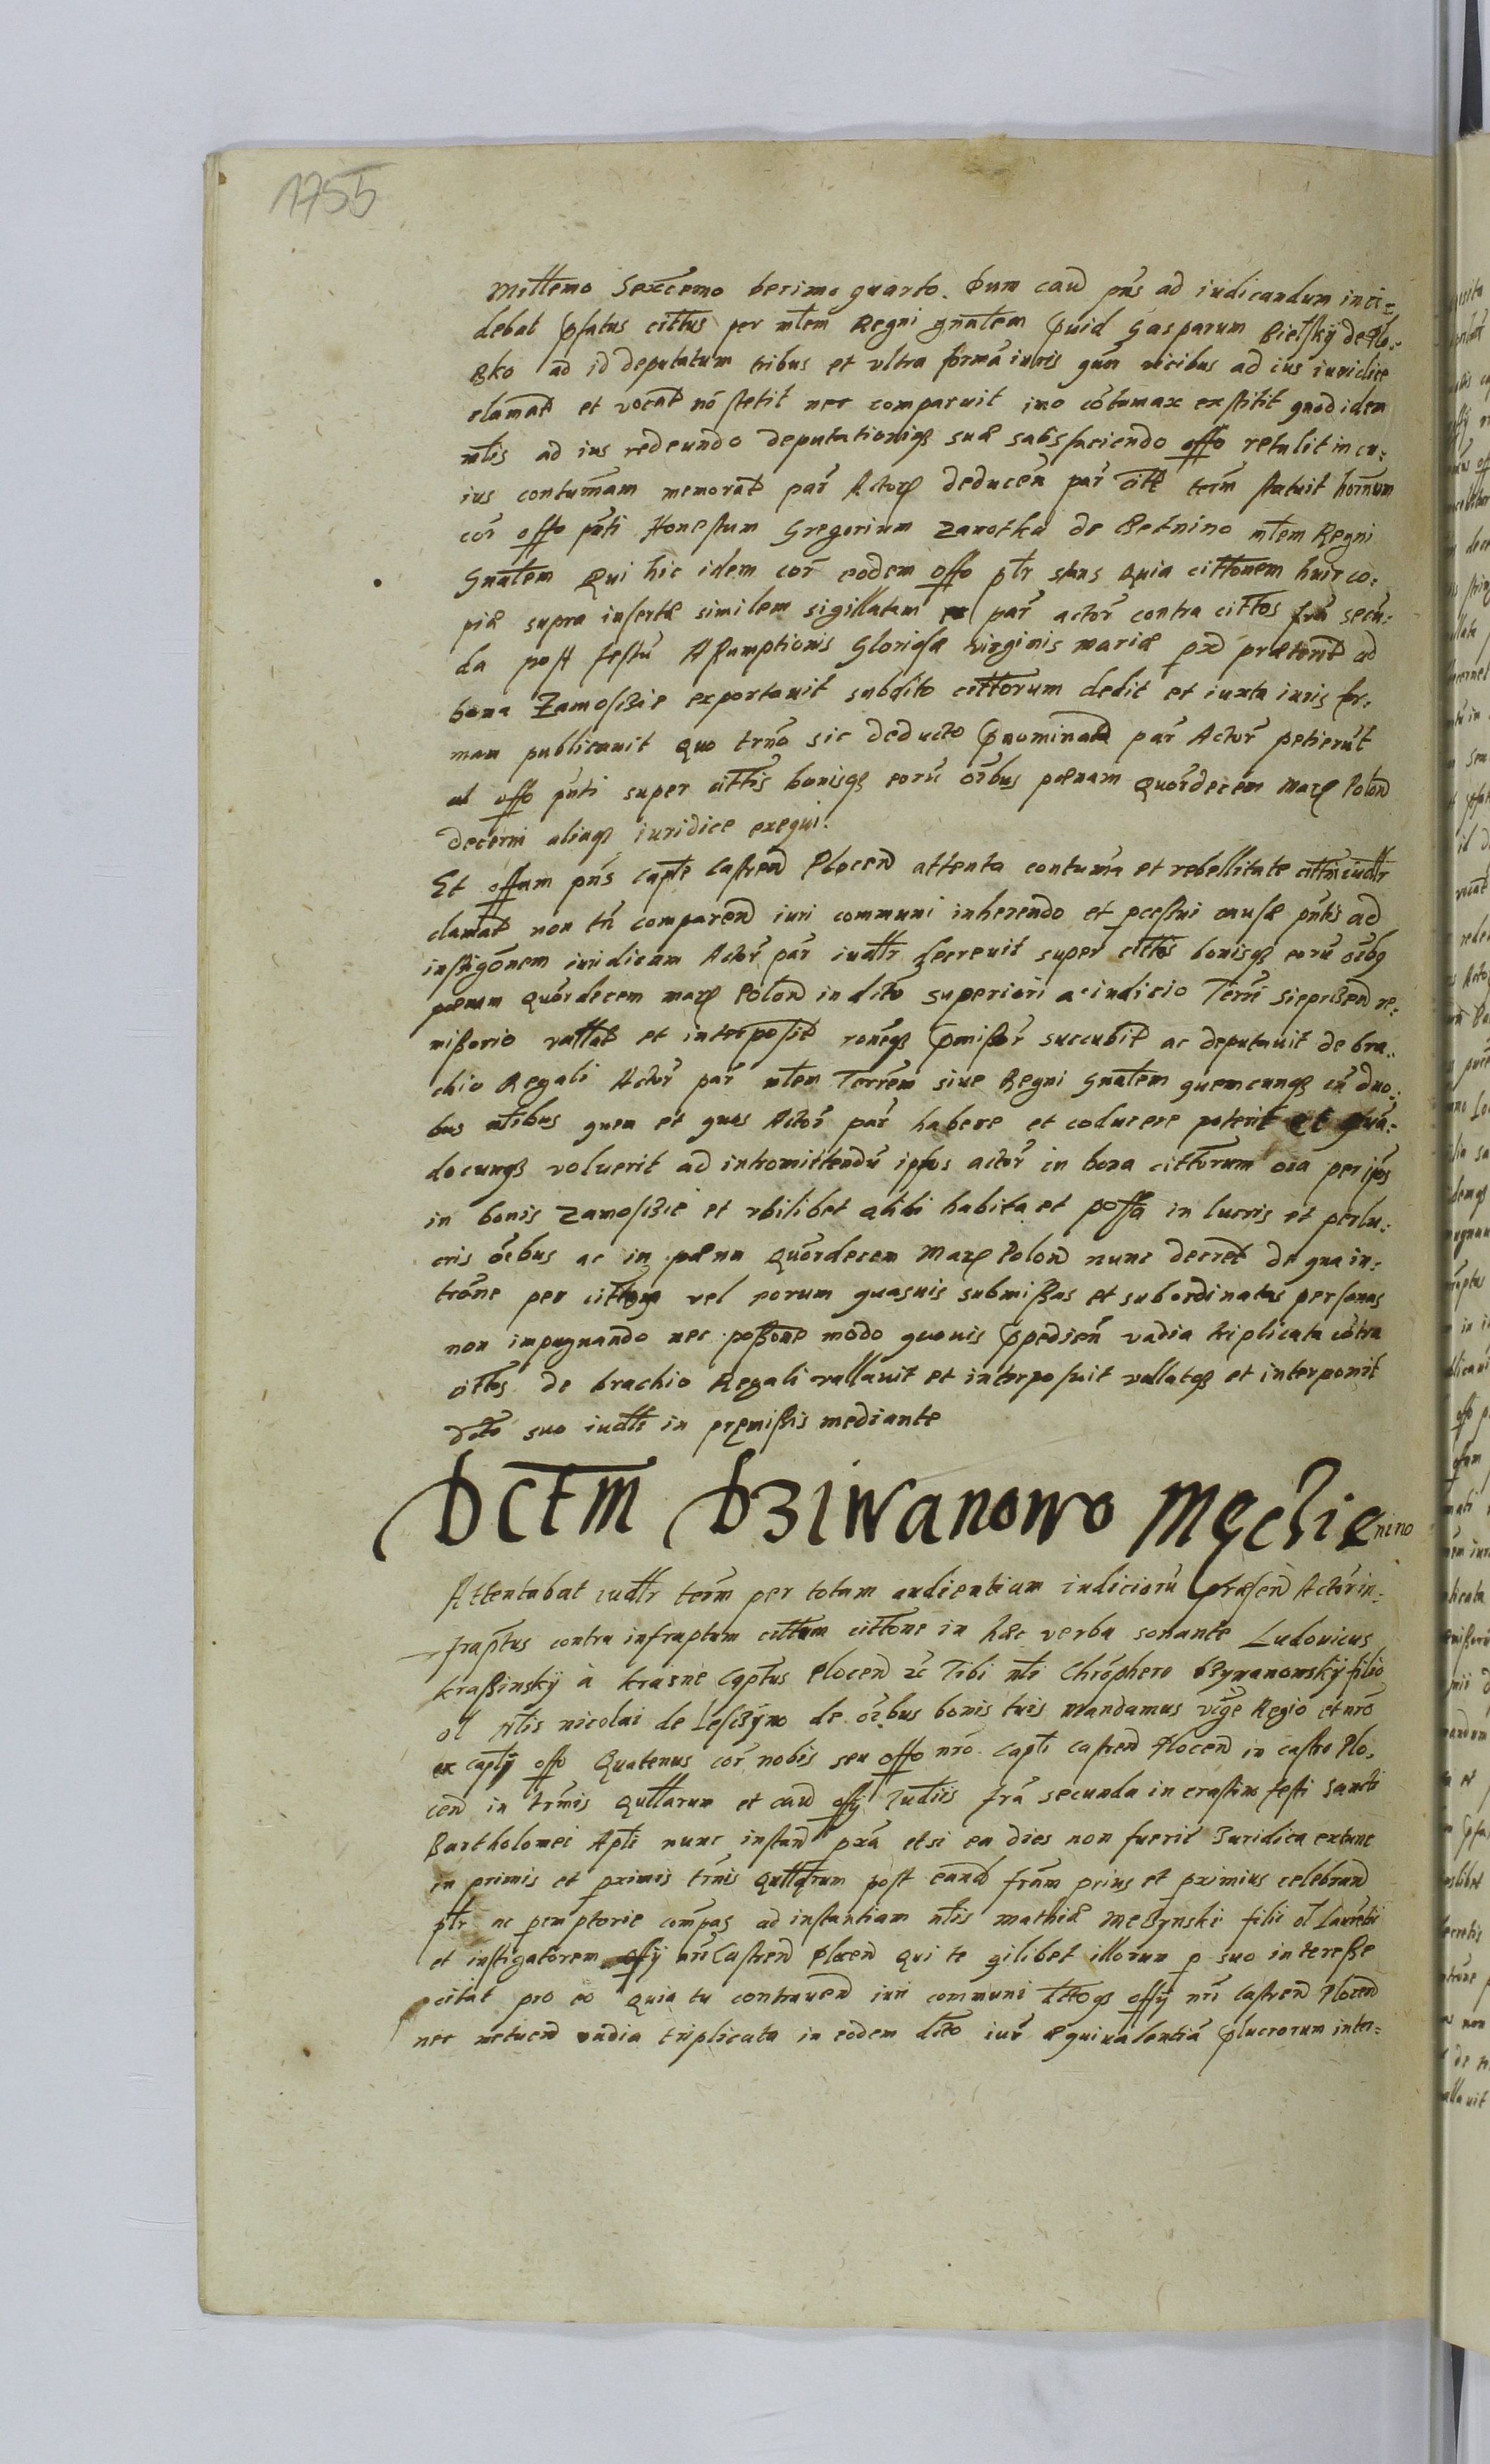 1755
Millemo Sexcemo decimo quarto. Dum caud pns ad iudicandum inci=
debat pfatus cittus per mtem Regni gnalem pvid Gasparum Bielsky de
ad id deputatum tribus et ultra forma iuris qun vicibus ad ius iuridice
clamat et vocat no stetit nec comparuit imo cotumax exstitit quod idem
mlis ad ius redeundo deputationiq suæ satisfaciendo offo retulit in cu=
ius contumam memorat par Actor deducen par citt term statuit hornum
cor offo pnti Honestum Gregorium Zanotka de mtem Regni
Gnalem Qui hic idem cor eodem offo ptr stans Quia cittonem huic co=
piæ supra insertæ similem sigillatam par actor contra cittos fra secu=
da post festu Assumptionis Gloriosæ virginis mariæ pxd præterit ad
bona Zamoscie exportavit subdito cittorum dedit et iuxta iuris for=
mam publicavit Quo trno sic deducto pnominata par Actor petierut
ab offo pnti super cittis bonisq eoru oibus pænam Quordecem Marc Polon
decerni aliaq iuridice exequi.
Et offum pns capte Castren Plocen attenta contuma et rebellitate citti iudtr
clamat non tn comparen iuri communi inherendo et pcessui causæ pntis ad
instigonem iuridicam Actor par iudtr decrevit super cittos bonisq eoru oibq
pænam Quordecem marc Polon in dcto superiori a iudicio Terri Sieprcen re=
missorio vallat et interposit roneq pmissor succubit ac deputavit de bra=
chio Regali Actor par mtem Terrem sive Regni Gnalem quemcunq cu duo=
bus nlibus quem et quos Actor par habere et coducere poterit et qua=
documq voluerit ad intromittendu ipsos actor in bona cittorum oia per ipos
in bonis Zamoscie et ubilibet alibi habita et possa in lucris et perlu=
cris oibus ac in pæna Quordecem Marc Polon nunc decret de qua in=
trone per cittos vel eorum quasvis submissas et subordinatas personas
non impugnando nec possone modo quovis ppedien vadia triplicata cotra
cittos de brachio Regali vallavit et interposuit vallatq et interponit
dcto suo iudli in pręmissis mediante
Dctm Dziwanowo Męchienino
Attentabat iudtr term per totam audientiam iudicioru præsen Actor in=
fraptus contra infraptum cittum cittone in hæc verba sonante Ludovicus
Krassinsky à Krasne Cptus Plocen zc Tibi nli Chrophero Dzyvanowsky filio
ol Nlis nicolai de Lesczyno de oibus bonis tuis Mandamus vige Regio et nro
ex captij offo Quatenus cor nobis seu offo nro capti castren Plocen in castro Plo=
cen in trmis Qullarum et caud offij Iudiis fra secunda in crastino festi Sancti
Bartholomei Apti nunc instan pxa etsi ea dies non fuerit Iuridica extunc
in primis et pximis trmis Qullarum post eand fram prius et pximius celebran
ptr ac pemptorie compas ad instantiam nlis mathiæ Meszynski filii ol Laureti
et instigatorem offij nri Castren Plocen qui te qilibet illorum p suo interesse
citat pro eo Quia tu contraven iuri communi dctoq offij nri Castren Plocen
nec metuen vadia triplicata in eodem dcto iur æquivalentia plucrorum inter=